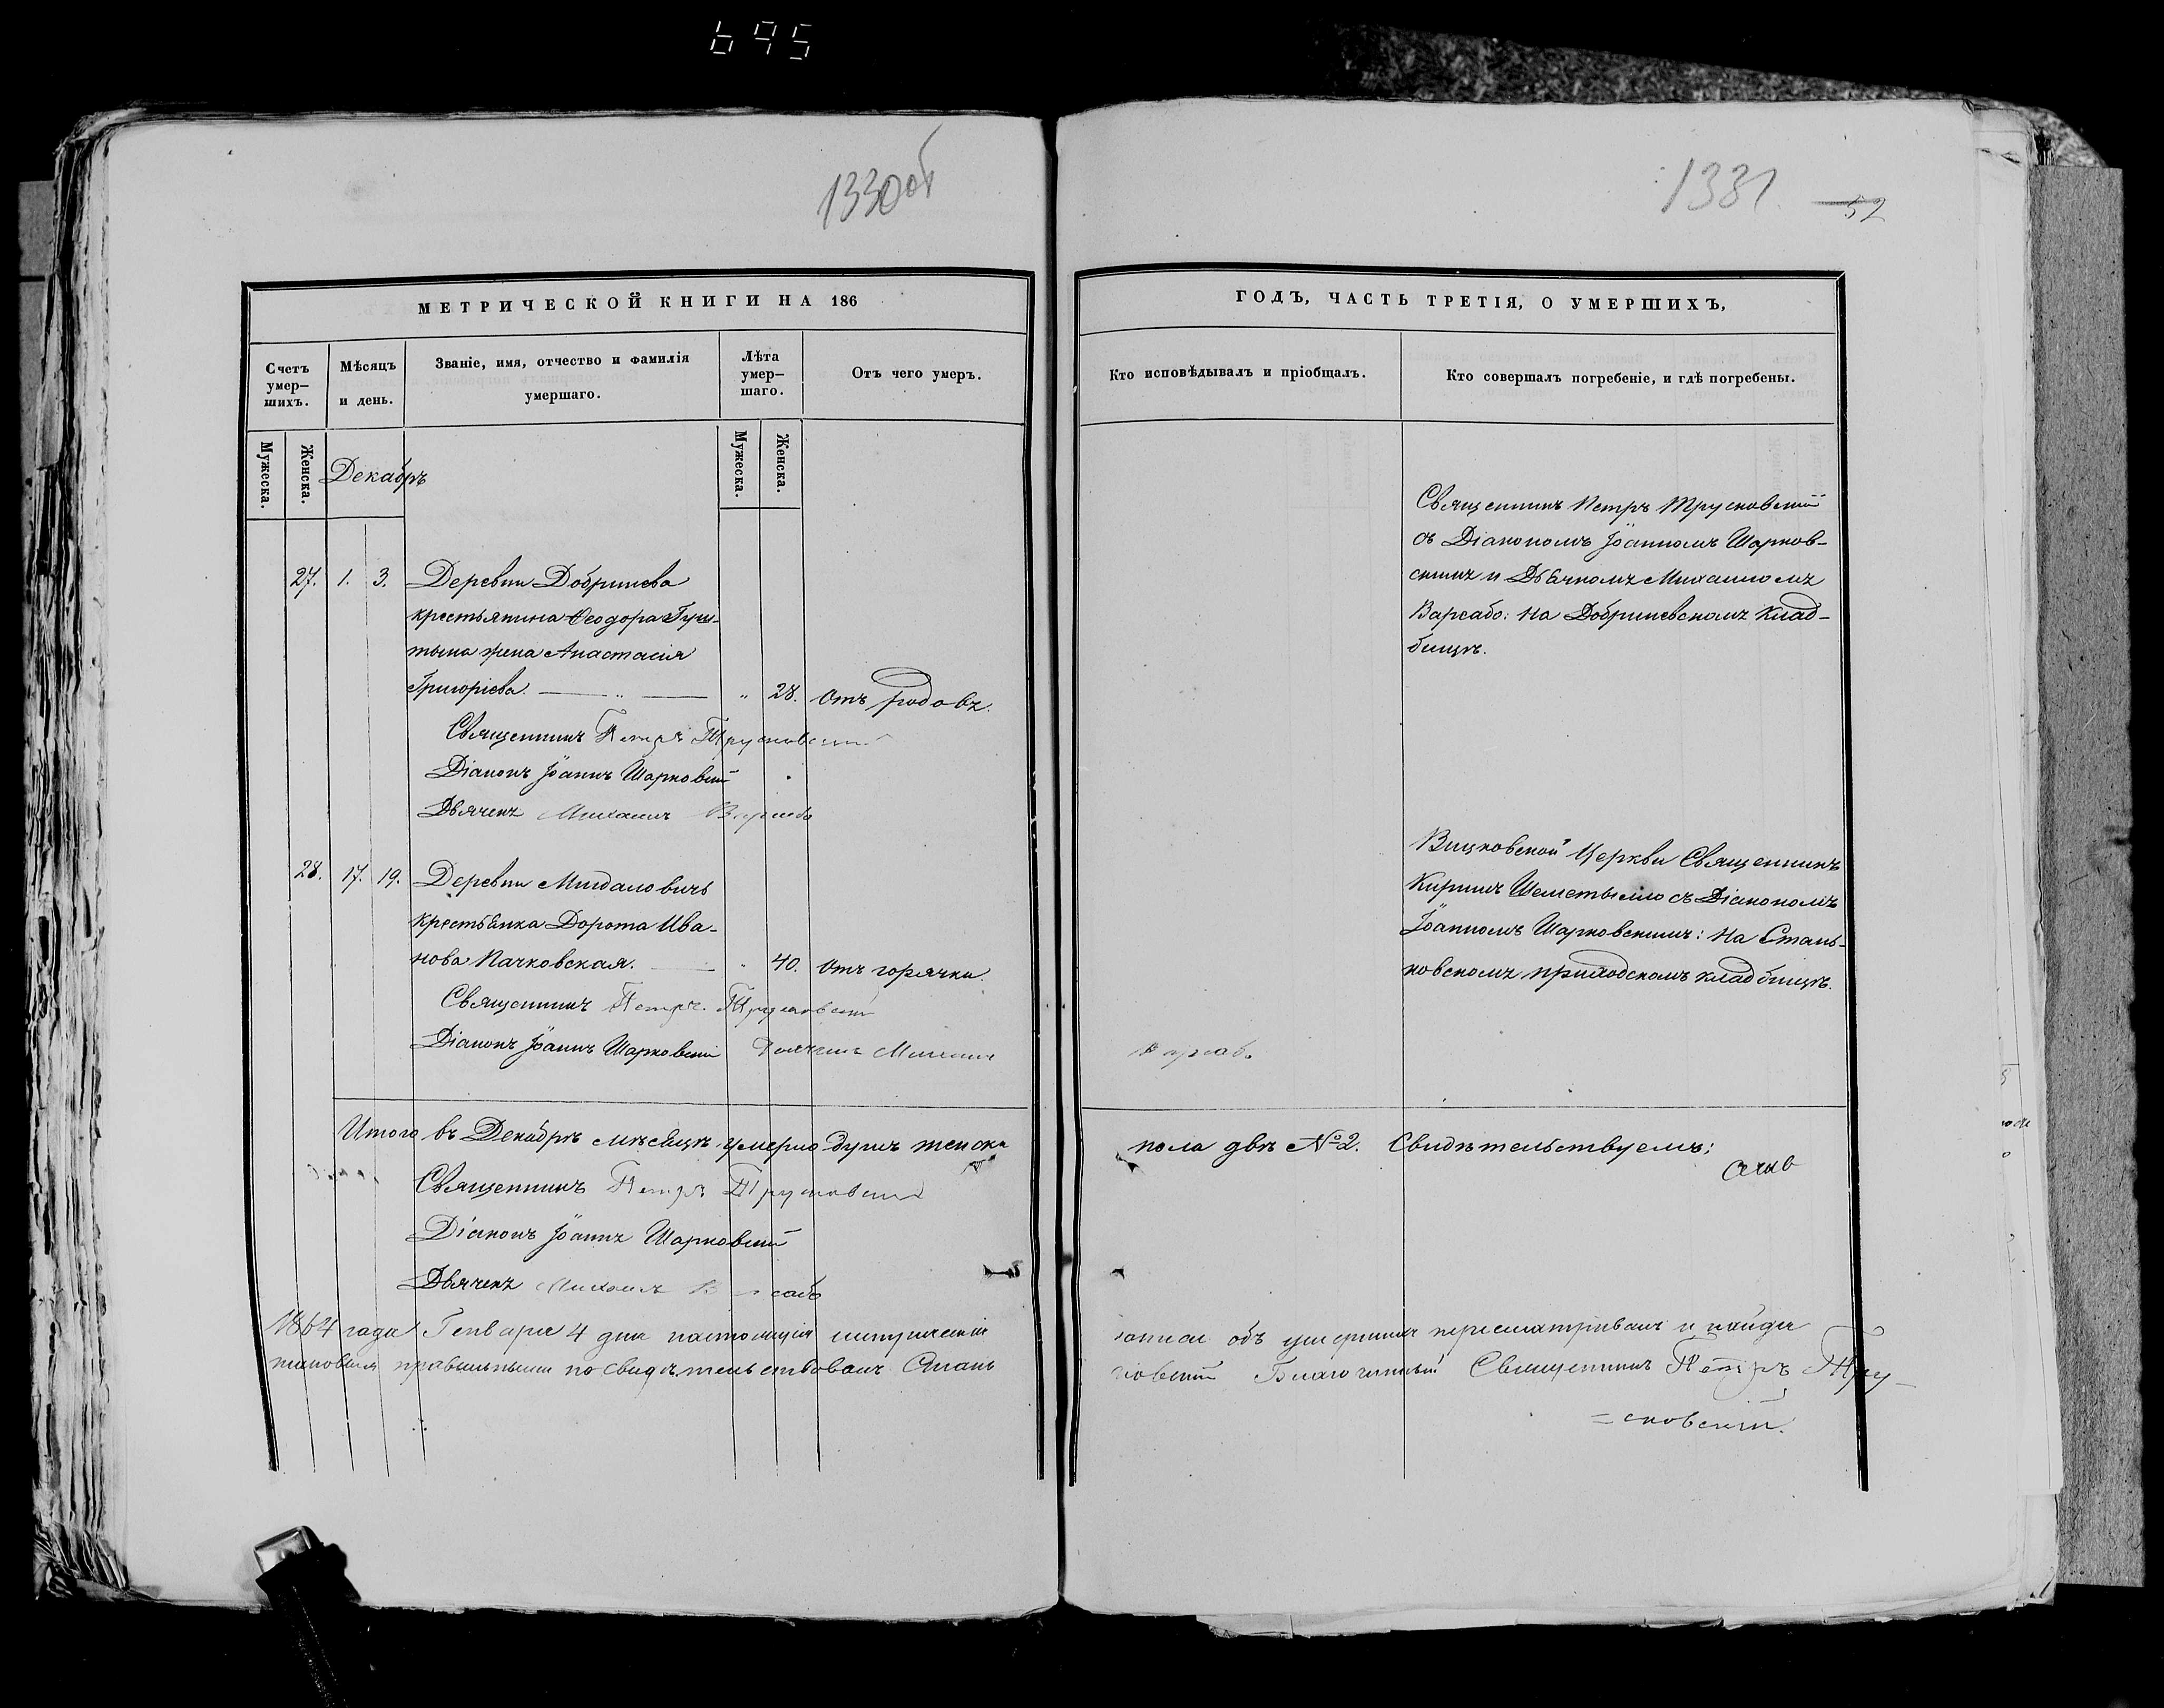 695
1330об
1331.
52
МЕТРИЧЕСКОЙ КНИГИ НА 186
Счетъ умер-шихъ.
Мѣсяцъ и день.
Званіе, имя, отчество и фамилія умершаго.
Лѣта умер-шаго.
Отъ чего умеръ.
Мужеска.
Женска.
Декабръ
Мужеска.
Женска.
27. 1. 3. Деревни Добринева
крестьянина Ѳеодора
жена Анастасія
Григоріева. — „ — „ 28. Отъ родовъ.
Священникъ Петръ Трусковскій
Діаконъ Іоаннъ Шарковскій
Дьячекъ Михаилъ Варсаба
28. 17. 19. Деревни
крестьянка Дорота Ива-
нова Пачковская. — „ 40. Отъ горячки.
Священникъ Петръ Трусковскій
Діаконъ Іоаннъ Шарковскій Дьячекъ Михаилъ
Итого въ Декабрѣ мѣсяцѣ умерло душъ женска
Священникъ Петръ Трусковскій
Діаконъ Іоаннъ Шарковскій
Дьячекъ Михаилъ
1864 года Генваря 4 дня
правильными по свидѣтельствовалъ Стань
ГОДЪ, ЧАСТЬ ТРЕТІЯ, О УМЕРШИХЪ,
Кто исповѣдывалъ и пріобщалъ.
Кто совершалъ погребеніе, и гдѣ погребены.
Священникъ Петръ Трусковскій
съ Діакономъ Іоанномъ Шарков-
скимъ и Дьячкомъ Михаиломъ
Варсабо: на Добриневскомъ клад-
бищѣ.
Вицковской Церкви Священникъ
Кириллъ Шеметылло съ Діакономъ
Іоанномъ Шарковскимъ: на Стань-
ковскомъ приходскомъ кладбищѣ.
Варсаба
пола двѣ №2. Свидѣтельствуемъ:
записи объ умершихъ пересматривалъ и найдя
ковскій Благочинный Священникъ Петръ Тру-
=сковскій.